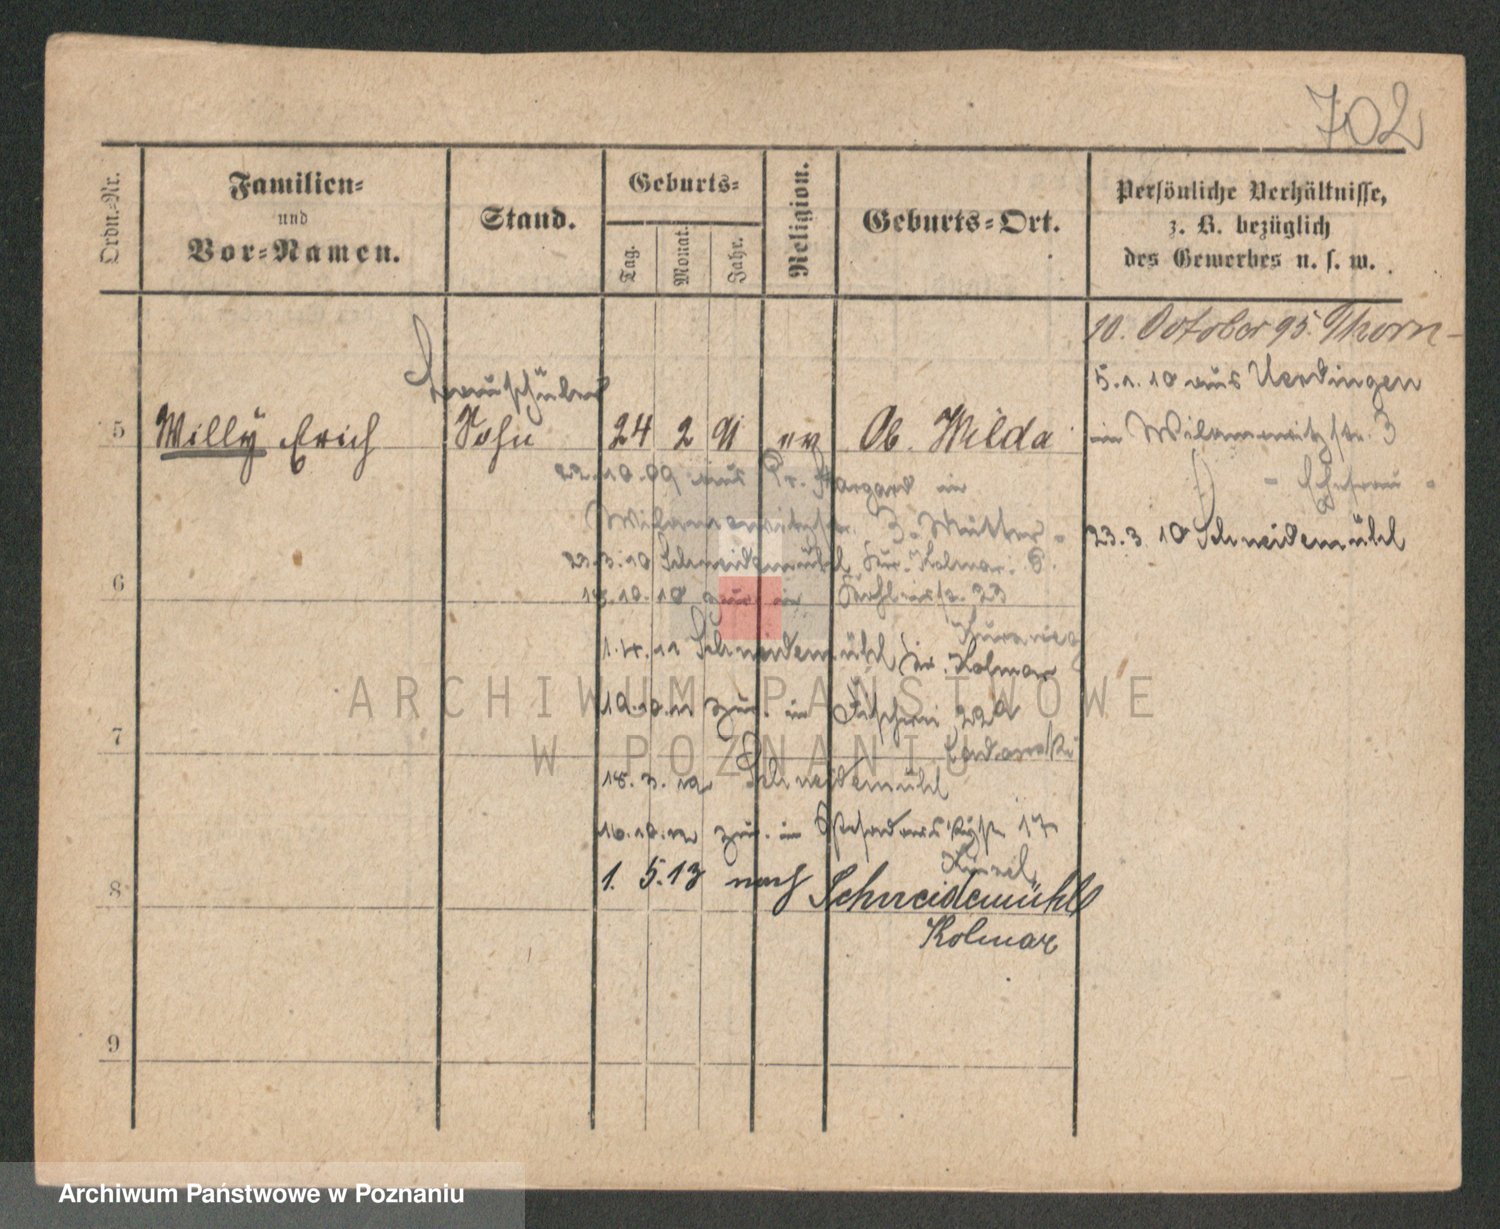 702
Ordn.-Nr.
Familien-
und
Vor-Namen.
Stand.
Geburts-
Tag.
Monat.
Jahr.
Religion.
Geburts-Ort.
Persönliche Verhältnisse,
z. B. bezüglich
des Gewerbes u. s. w.
10. October 95. Thorn -
5.1.10 aus Uerdingen
5 Willy Erich Sohn 24 2 91 ev Ob. Wilda
in Wilamowitzstr. 3
22.10.09 aus Pr. Stargard in
- Ehefrau -
Wilamowitzstr. 3. Mutter.
23.3.10 Schneidemühl
23.3.10 Schneidemühl Kr. Kolmar.
6
18.10.10 zur. in 23
1.4.11 Schneidemühl Kr. Kolmar
ARCHIWUM PAŃSTWOWE
W POZNANIU
7
19.10.11 zur. in 22a
18.3.12 Schneidemühl
16.10.12 zur. in 17
8
1. 5.13 nach Schneidemühl
Kolmar
9
Archiwum Państwowe w Poznaniu